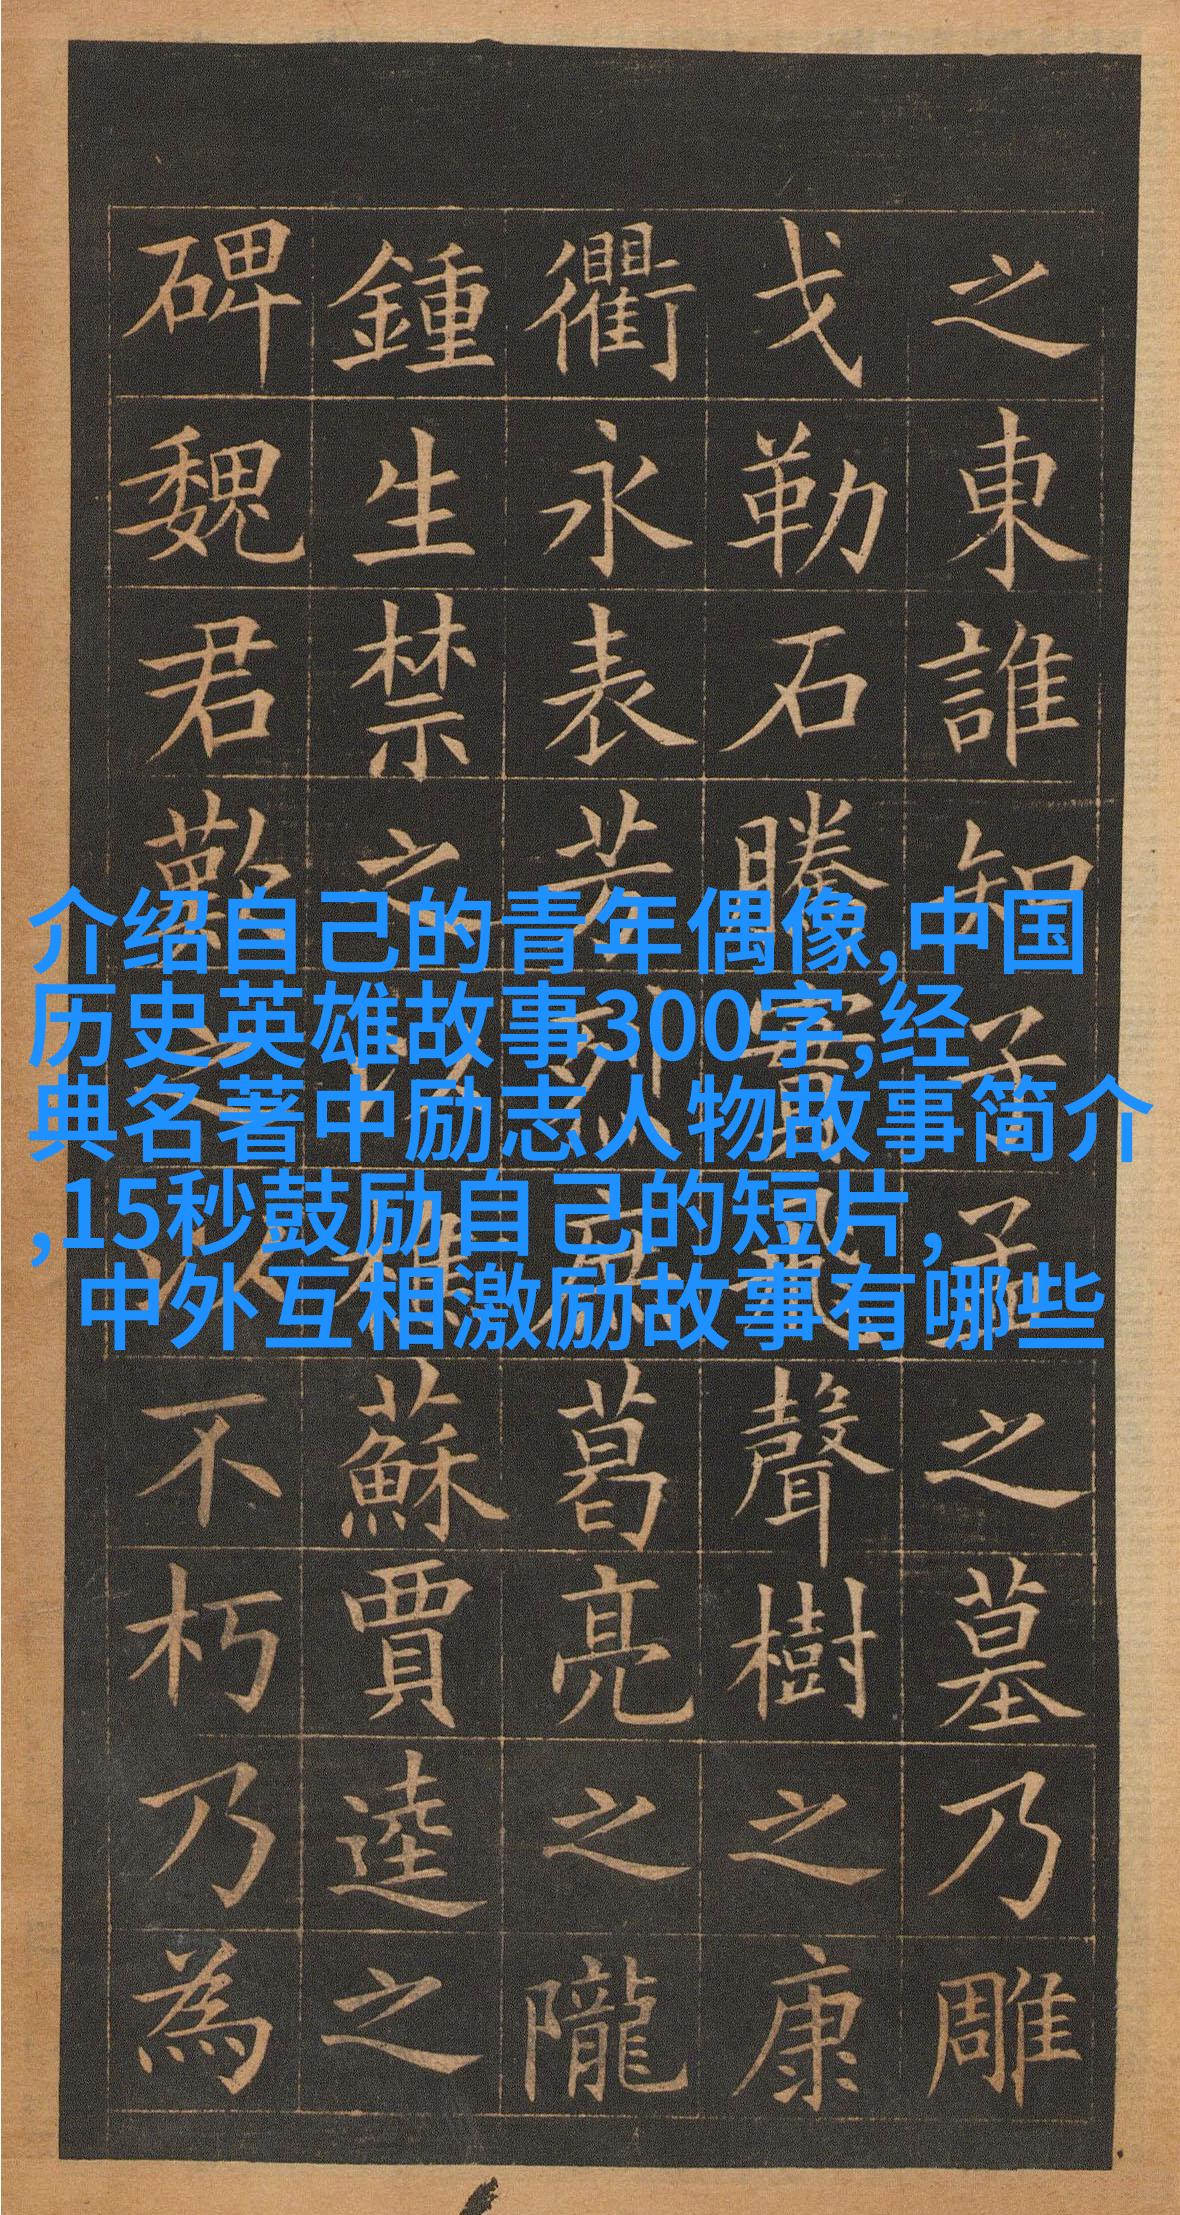 介绍自己的青年偶像,中国
历史英雄故事300字,经
典名著中励志人物故事简介
,15秒鼓励自己的短片,
中外互相激励故事有哪些
之東誰知子孟之墓乃雕
戈勒石騰實飛聲樹之康
衢永表芳烈庶葛亮之隴
鍾生禁之樵蘇賈逵之
碑魏君歎之以不朽乃為